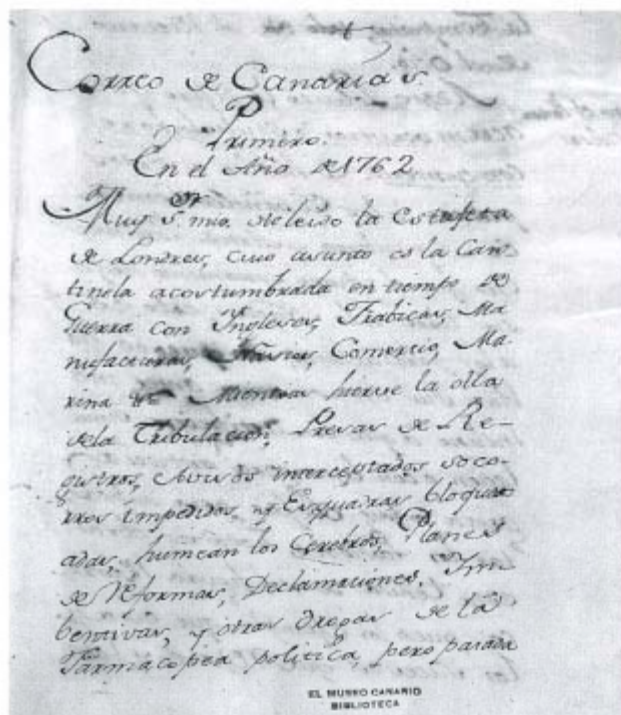 Correo de Canarias.
Primero.
En el Año de 1762
Muy Sr. mio. he leido la Estafeta
de Londres, cuio asunto es la Can
tinela acostumbrada en tiempo de
Guerra con Ingleses, Frabicas, Ma
nufacturas, Comercio, Ma
rina &c. Mientras hierve la olla
dela Tribulacion, Presas de Re-
gistros, Avisos interceptados, soco
rros impedidos, y Esquadras bloque
adas, humean los Cerebros, Planes
de Reformas, Declamaciones, Im
bentivas, y otras Drogas de la
Farmacopea politica, pero pasada
EL MUSEO CANARIO
BIBLIOTECA